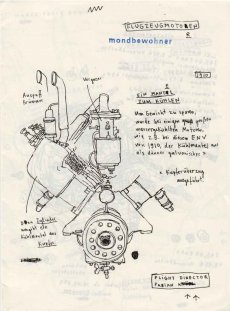 FLUGZEUGMOTOREN
mondbewohner
1910
Vergaser
Auspuff
Krümmer
EIN MANTEL
ZUM KÜHLEN
Um Gewicht zu sparen,
wurde bei einigen großen
wassergekühlten Motoren,
wie z.B. bei diesem ENV
von 1910, der Kühlmantel nur
als dünner galvanischer
Kupferüberzug
ausgeführt.
Den Zylinder
umgibt ein
Kühlmantel aus
Kupfer.
FLIGHT DIRECTOR
FABIAN